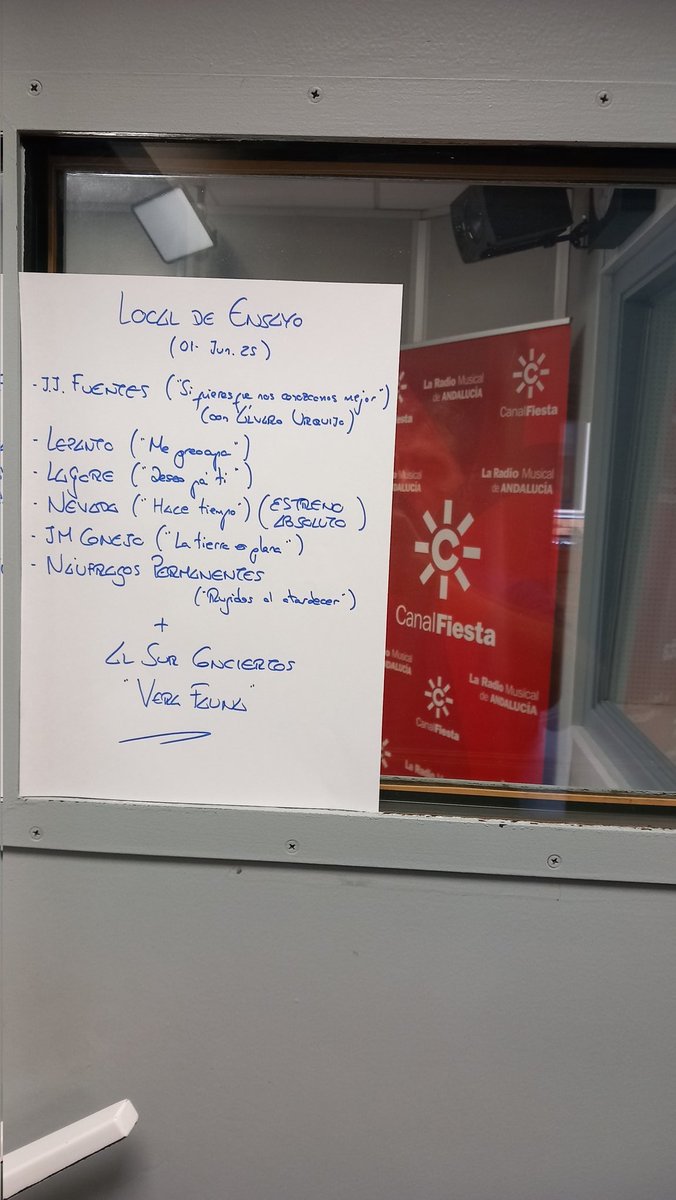 LOCAL DE ENSAYO
(01- Jun. 25)
- J.J. FUENTES ("Si quieres que nos conozcamos mejor")
(con Álvaro Urquijo)
- LEPANTO ("Me preocupa")
- LAGORE ("Deseo pa' ti")
- NEVADA ("Hace tiempo") (ESTRENO
ABSOLUTO)
- JM CONEJO ("La tierra es plana")
- NÁUFRAGOS PERMANENTES
("Rugidos al atardecer")
+
AL SUR CONCIERTOS
"VERA FAUNA"
La Radio Musical
de ANDALUCÍA
CanalFiesta
La Radio Musical
de ANDALUCÍA
CanalFiesta
La Radio Musical
de ANDALUCÍA
CanalFiesta